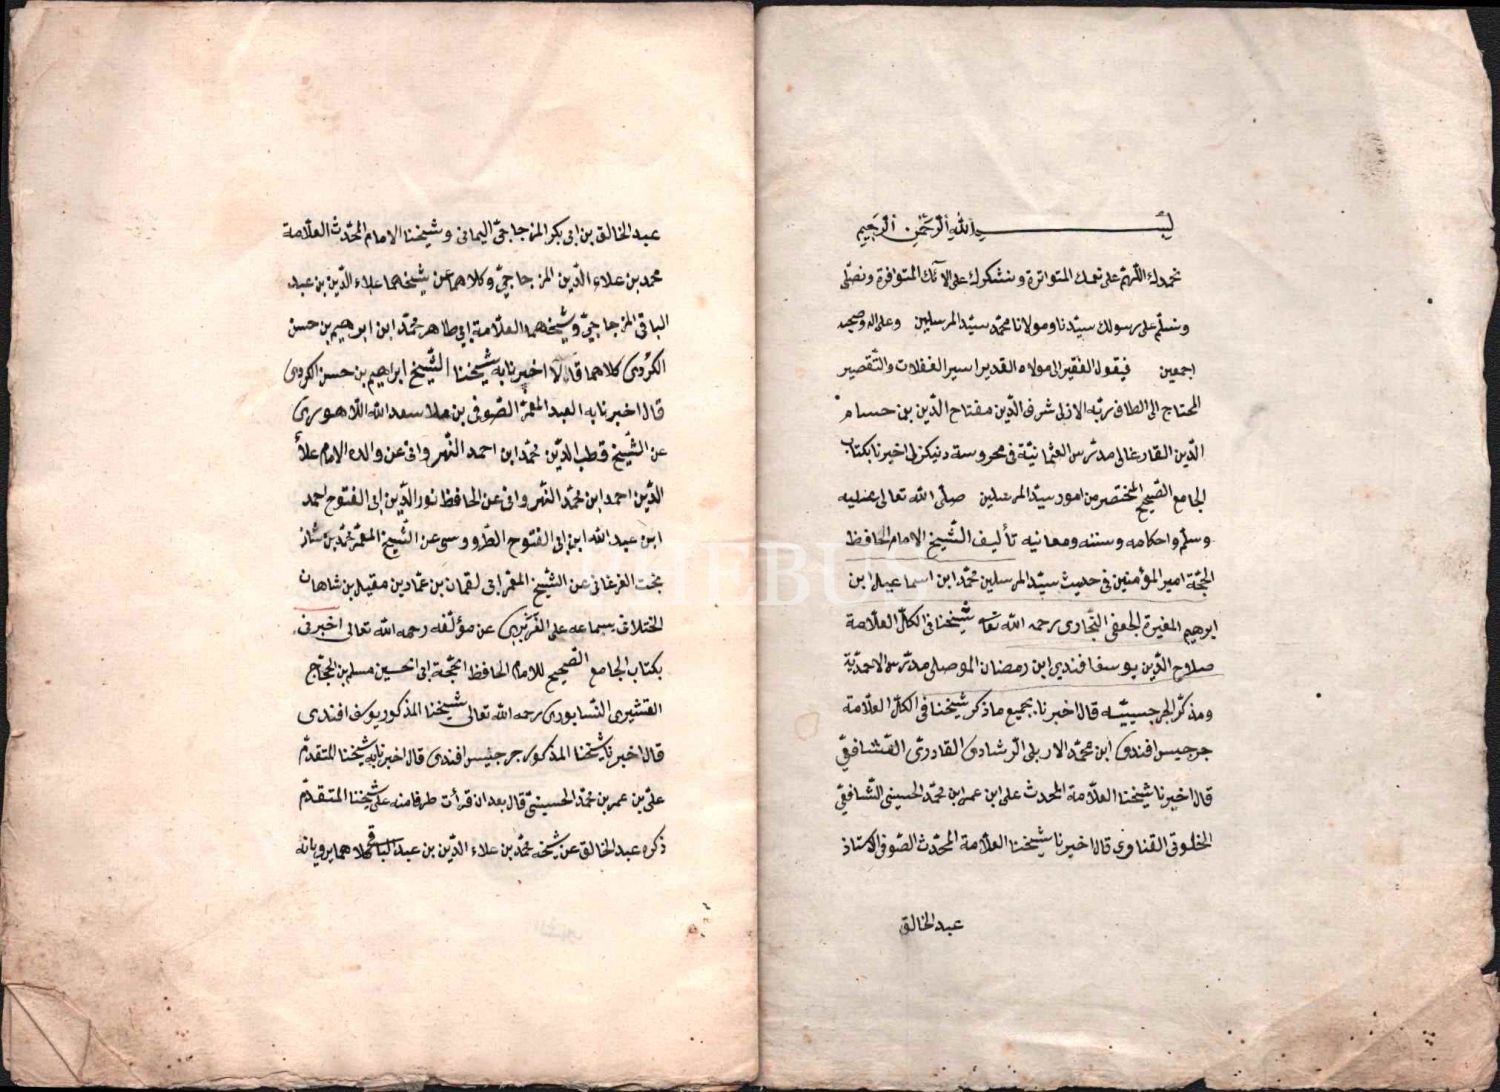 بسم الله الرحمن الرحيم
نحمدك اللهم على نعمك المتواترة ونشكرك على الآئك المتوافرة ونصلّى
ونسلّم على رسولك سيّدنا ومولانا محمّد سيّد المرسلين وعلى اله وصحبه
اجمعين فيقول الفقير الى مولاه القدير اسير الغفلات والتّقصير
المحتاج الى الطاف ربّه الازلى شرف الدّين مفتاح الدّين بن حسام
الدّين القارغالى مدرّس العثمانيّة فى محروسة اخبرنا بكتاب
الجامع الصّحيح المختصر من امور سيّد المرسلين صلّى الله تعالى عليه
وسلّم واحكامه وسننه ومعانيه تأليف الشّيخ الامام الحافظ
الحجّة امير المؤمنين فى حديث سيّد المرسلين محمّد ابن اسماعيل ابن
ابرهيم المغيرة الجعفى البخارى رحمه الله تعا شيخنا فى الكلّ العلّامة
صلاح الدّين يوسف افندى ابن رمضان الموصلى مدرّس الاحمديّة
ومذكّر الجرجسيّه قال اخبرنا بجميع ما ذكر شيخنا فى الكلّ العلّامة
جرجيس افندى ابن محمّد الاربلى الرشادى القادرى الشّافعىّ
قال اخبرنا شيخنا العلّامة المحدث على ابن عمر ابن محمّد الحسينى الشّافعىّ
الخلوتى القناوى قال اخبرنا شيخنا العلّامة المحدّث الصّوفى الاستاذ
عبد الخالق
عبد الخالق بن ابى بكر المزجاجىّ اليمانى وشيخنا الامام المحدّث العلّامة
محمد بن علاء الدّين المزجاجىّ وكلاهما عن شيخهما علاء الدّين بن عبد
الباقى المزجاجىّ وشيخهما العلّامة ابى طاهر محمّد ابن ابرهيم بن حسن
الكردى كلاهما قالا اخبرنا به شيخنا الشّيخ ابراهيم بن حسن الكردى
قال اخبرنا به العبد المعمّر الصّوفى بن ملا سعد الله اللاهورى
عن الشّيخ قطب الدّين محمّد ابن احمد النّهروانى عن والده الامام علأ
الدّين احمد ابن محمّد النّهروانى عن الحافظ نور الدّين ابى الفتوح احمد
ابن عبد الله ابن ابى الفتوح الطّاووسى عن الشّيخ المعمّر محمّد بن شاد
بخت الفرغانى عن الشّيخ المعمّر ابى لقمان بن عمّاد بن مقيل بن شاهان
الختلانى بسماعه على الفربرى عن مؤلّفه رحمه الله تعالى اخبرنى
بكتاب الجامع الصّحيح للامام الحافظ الحجّة ابى الحسين مسلم بن الحجّاج
القشيرى النّسابورى رحمه الله تعالى شيخنا المذكور يوسف افندى
قال اخبرنا شيخنا المذكور جرجيس افندى قال اخبرنا به شيخنا المتقدّم
علىّ بن عمر بن محمّد الحسينىّ قال بعد ان قرأت طرفا منه على شيخنا المتقدّم
ذكره عبد الخالق عن شيخه محمّد بن علاء الدّين بن عبد الباقى كلاهما يرويانه
PHEBUS